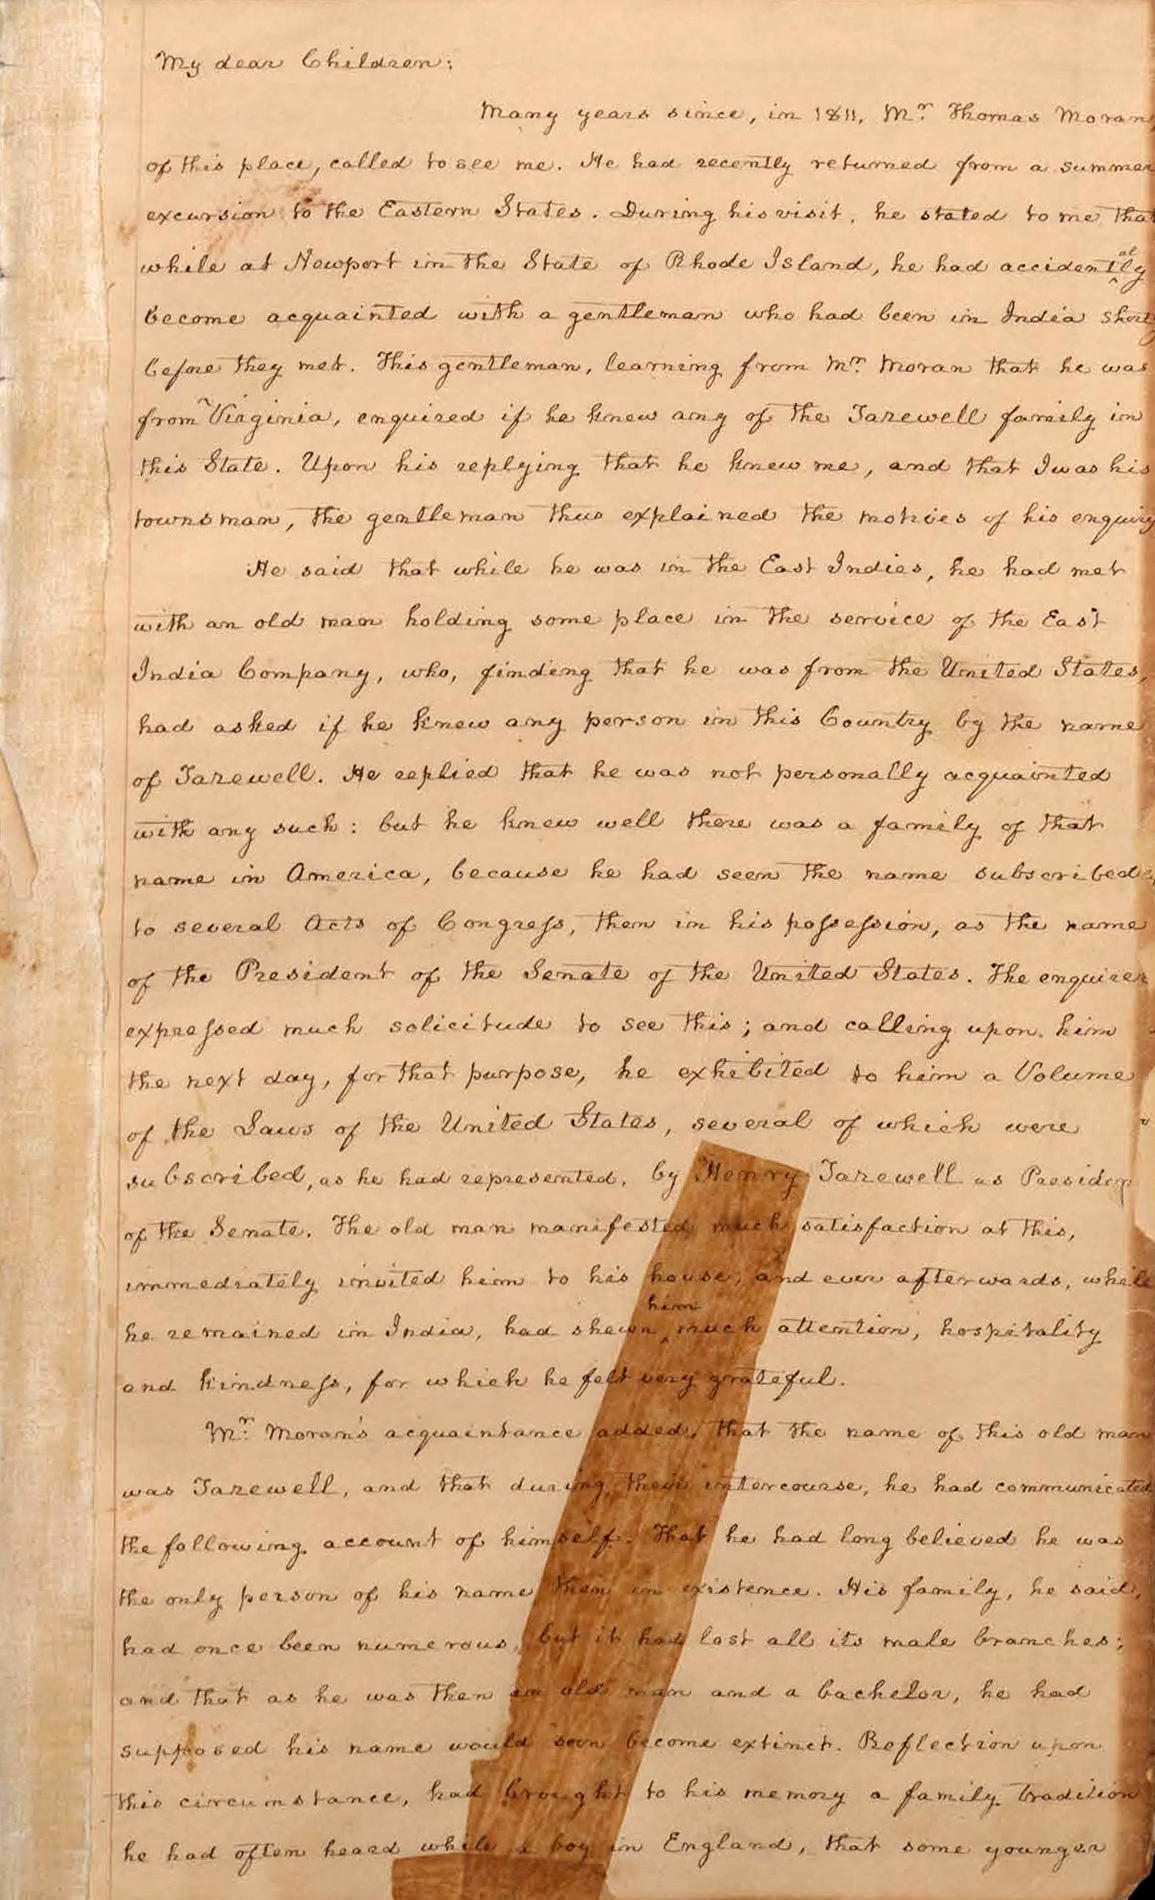 My dear Children;
Many years since, in 1811, Mr. Thomas Moran,
of this place, called to see me. He had recently returned from a summer
excursion to the Eastern States. During his visit, he stated to me that
while at Newport in the State of Rhode Island, he had accidentally
become acquainted with a gentleman who had been in India shortly
before they met. This gentleman, learning from Mr. Moran that he was
from Virginia, enquired if he knew any of the Tazewell family in
this State. Upon his replying that he knew me, and that I was his
townsman, the gentleman thus explained the motives of his enquiry
He said that while he was in the East Indies, he had met
with an old man holding some place in the service of the East
India Company, who, finding that he was from the United States,
had asked if he knew any person in this Country by the name
of Tazewell. He replied that he was not personally acquainted
with any such: but he knew well there was a family of that
name in America, because he had seen the name subscribed,
to several Acts of Congress, then in his possession, as the name
of the President of the Senate of the United States. The enquirer
expressed much solicitude to see this; and calling upon him
the next day, for that purpose, he exhibited to him a Volume
of the Laws of the United States, several of which were
subscribed, as he had represented, by Henry Tazewell as Presiden
of the Senate. The old man manifested much satisfaction at this,
immediately invited him to his house, and ever afterwards, while
he remained in India, had shewn him much attention, hospitality
and kindness, for which he felt very grateful.
Mr. Moran's acquaintance added, that the name of this old man
was Tazewell, and that during their intercourse, he had communicated
the following account of himself. That he had long believed he was
the only person of his name then in existence. His family, he said,
had once been numerous, but it had lost all its male branches;
and that as he was then an old man and a bachelor, he had
supposed his name would soon become extinct. Reflection upon
this circumstance, had brought to his memory a family tradition
he had often heard while a boy in England, that some younger